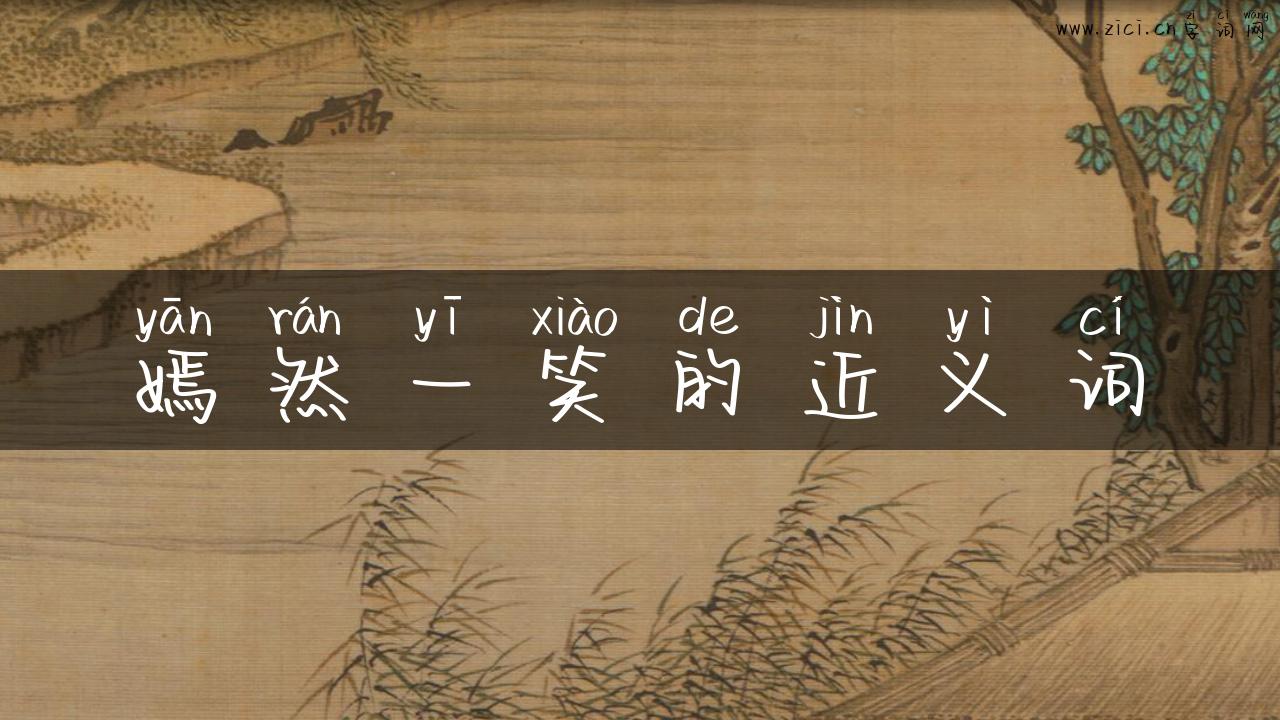 zì cí wǎng
www.zici.cn字词网
yān rán yī xiào de jìn yì cí
嫣然一笑的近义词